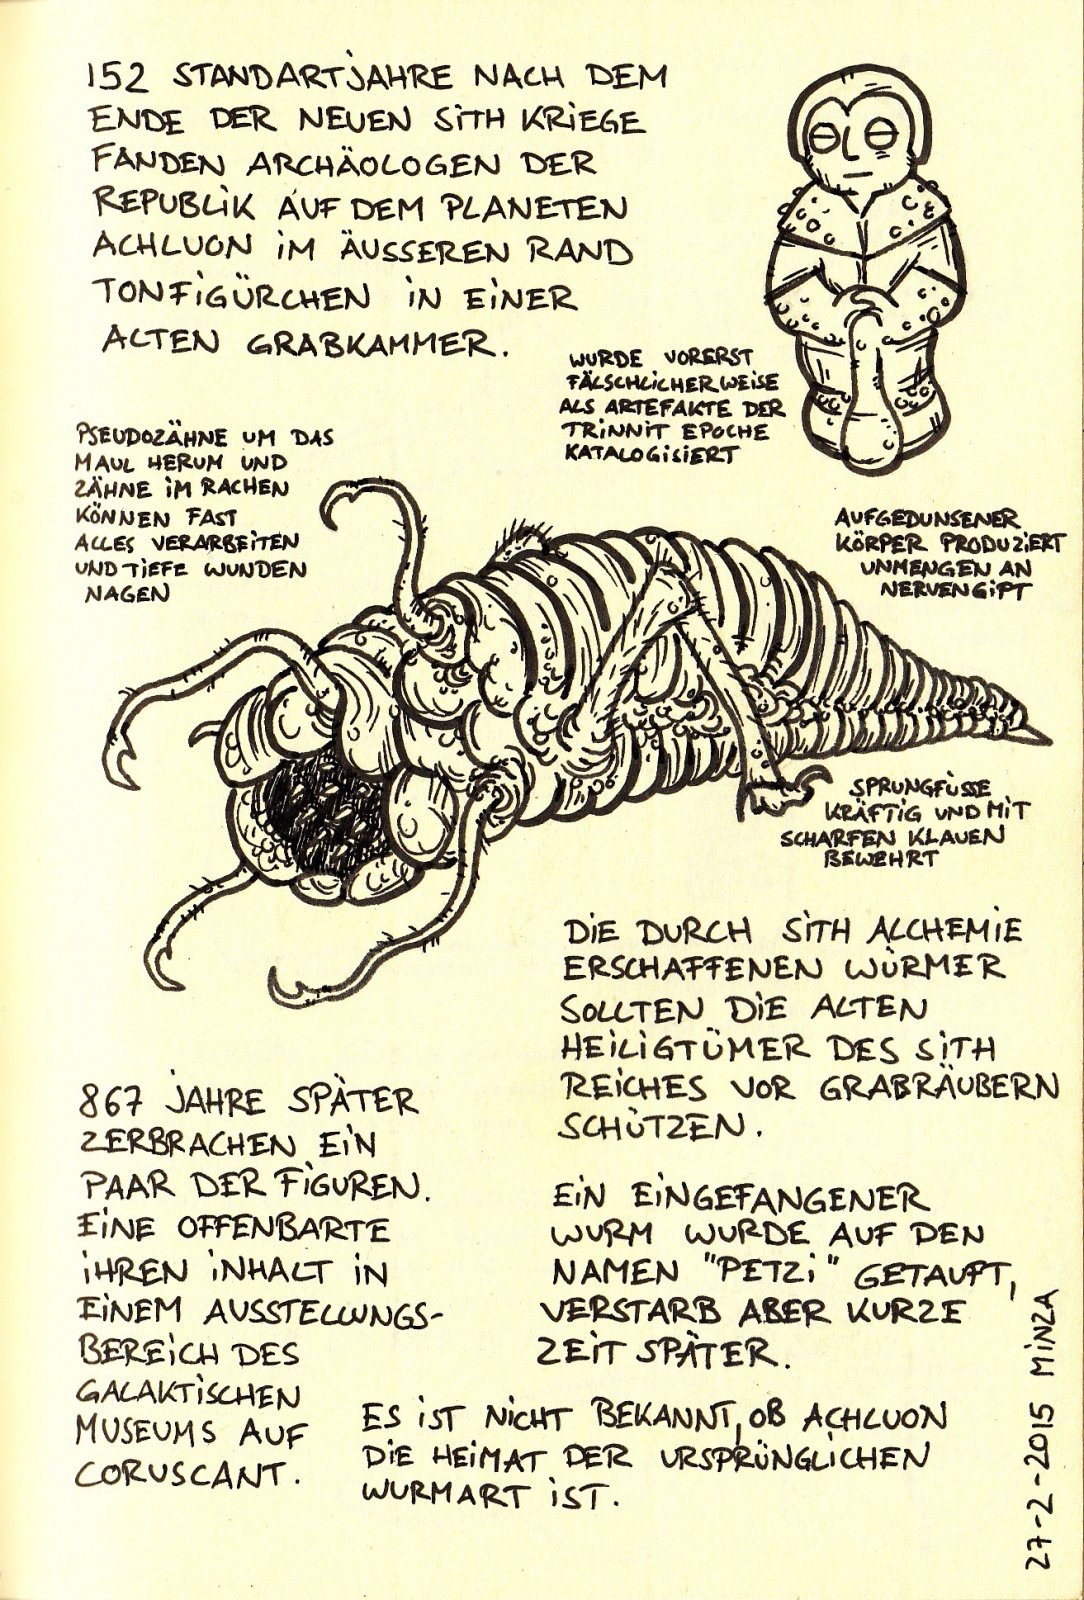 152 STANDARTJAHRE NACH DEM
ENDE DER NEUEN SITH KRIEGE
FANDEN ARCHÄOLOGEN DER
REPUBLIK AUF DEM PLANETEN
ACHLUON IM ÄUSSEREN RAND
TONFIGÜRCHEN IN EINER
ALTEN GRABKAMMER.
WURDE VORERST
FÄLSCHLICHERWEISE
ALS ARTEFAKTE DER
TRINNIT EPOCHE
KATALOGISIERT
PSEUDOZÄHNE UM DAS
MAUL HERUM UND
ZÄHNE IM RACHEN
KÖNNEN FAST
ALLES VERARBEITEN
UND TIEFE WUNDEN
NAGEN
AUFGEDUNSENER
KÖRPER PRODUZIERT
UNMENGEN AN
NERVENGIFT
SPRUNGFÜSSE
KRÄFTIG UND MIT
SCHARFEN KLAUEN
BEWEHRT
DIE DURCH SITH ALCHEMIE
ERSCHAFFENEN WÜRMER
SOLLTEN DIE ALTEN
HEILIGTÜMER DES SITH
REICHES VOR GRABRÄUBERN
SCHÜTZEN.
867 JAHRE SPÄTER
ZERBRACHEN EIN
PAAR DER FIGUREN.
EINE OFFENBARTE
IHREN INHALT IN
EINEM AUSSTELLUNGS-
BEREICH DES
GALAKTISCHEN
MUSEUMS AUF
CORUSCANT.
EIN EINGEFANGENER
WURM WURDE AUF DEN
NAMEN "PETZI" GETAUFT,
VERSTARB ABER KURZE
ZEIT SPÄTER.
ES IST NICHT BEKANNT, OB ACHLUON
DIE HEIMAT DER URSPRÜNGLICHEN
WURMART IST.
27-2-2015 MINZA